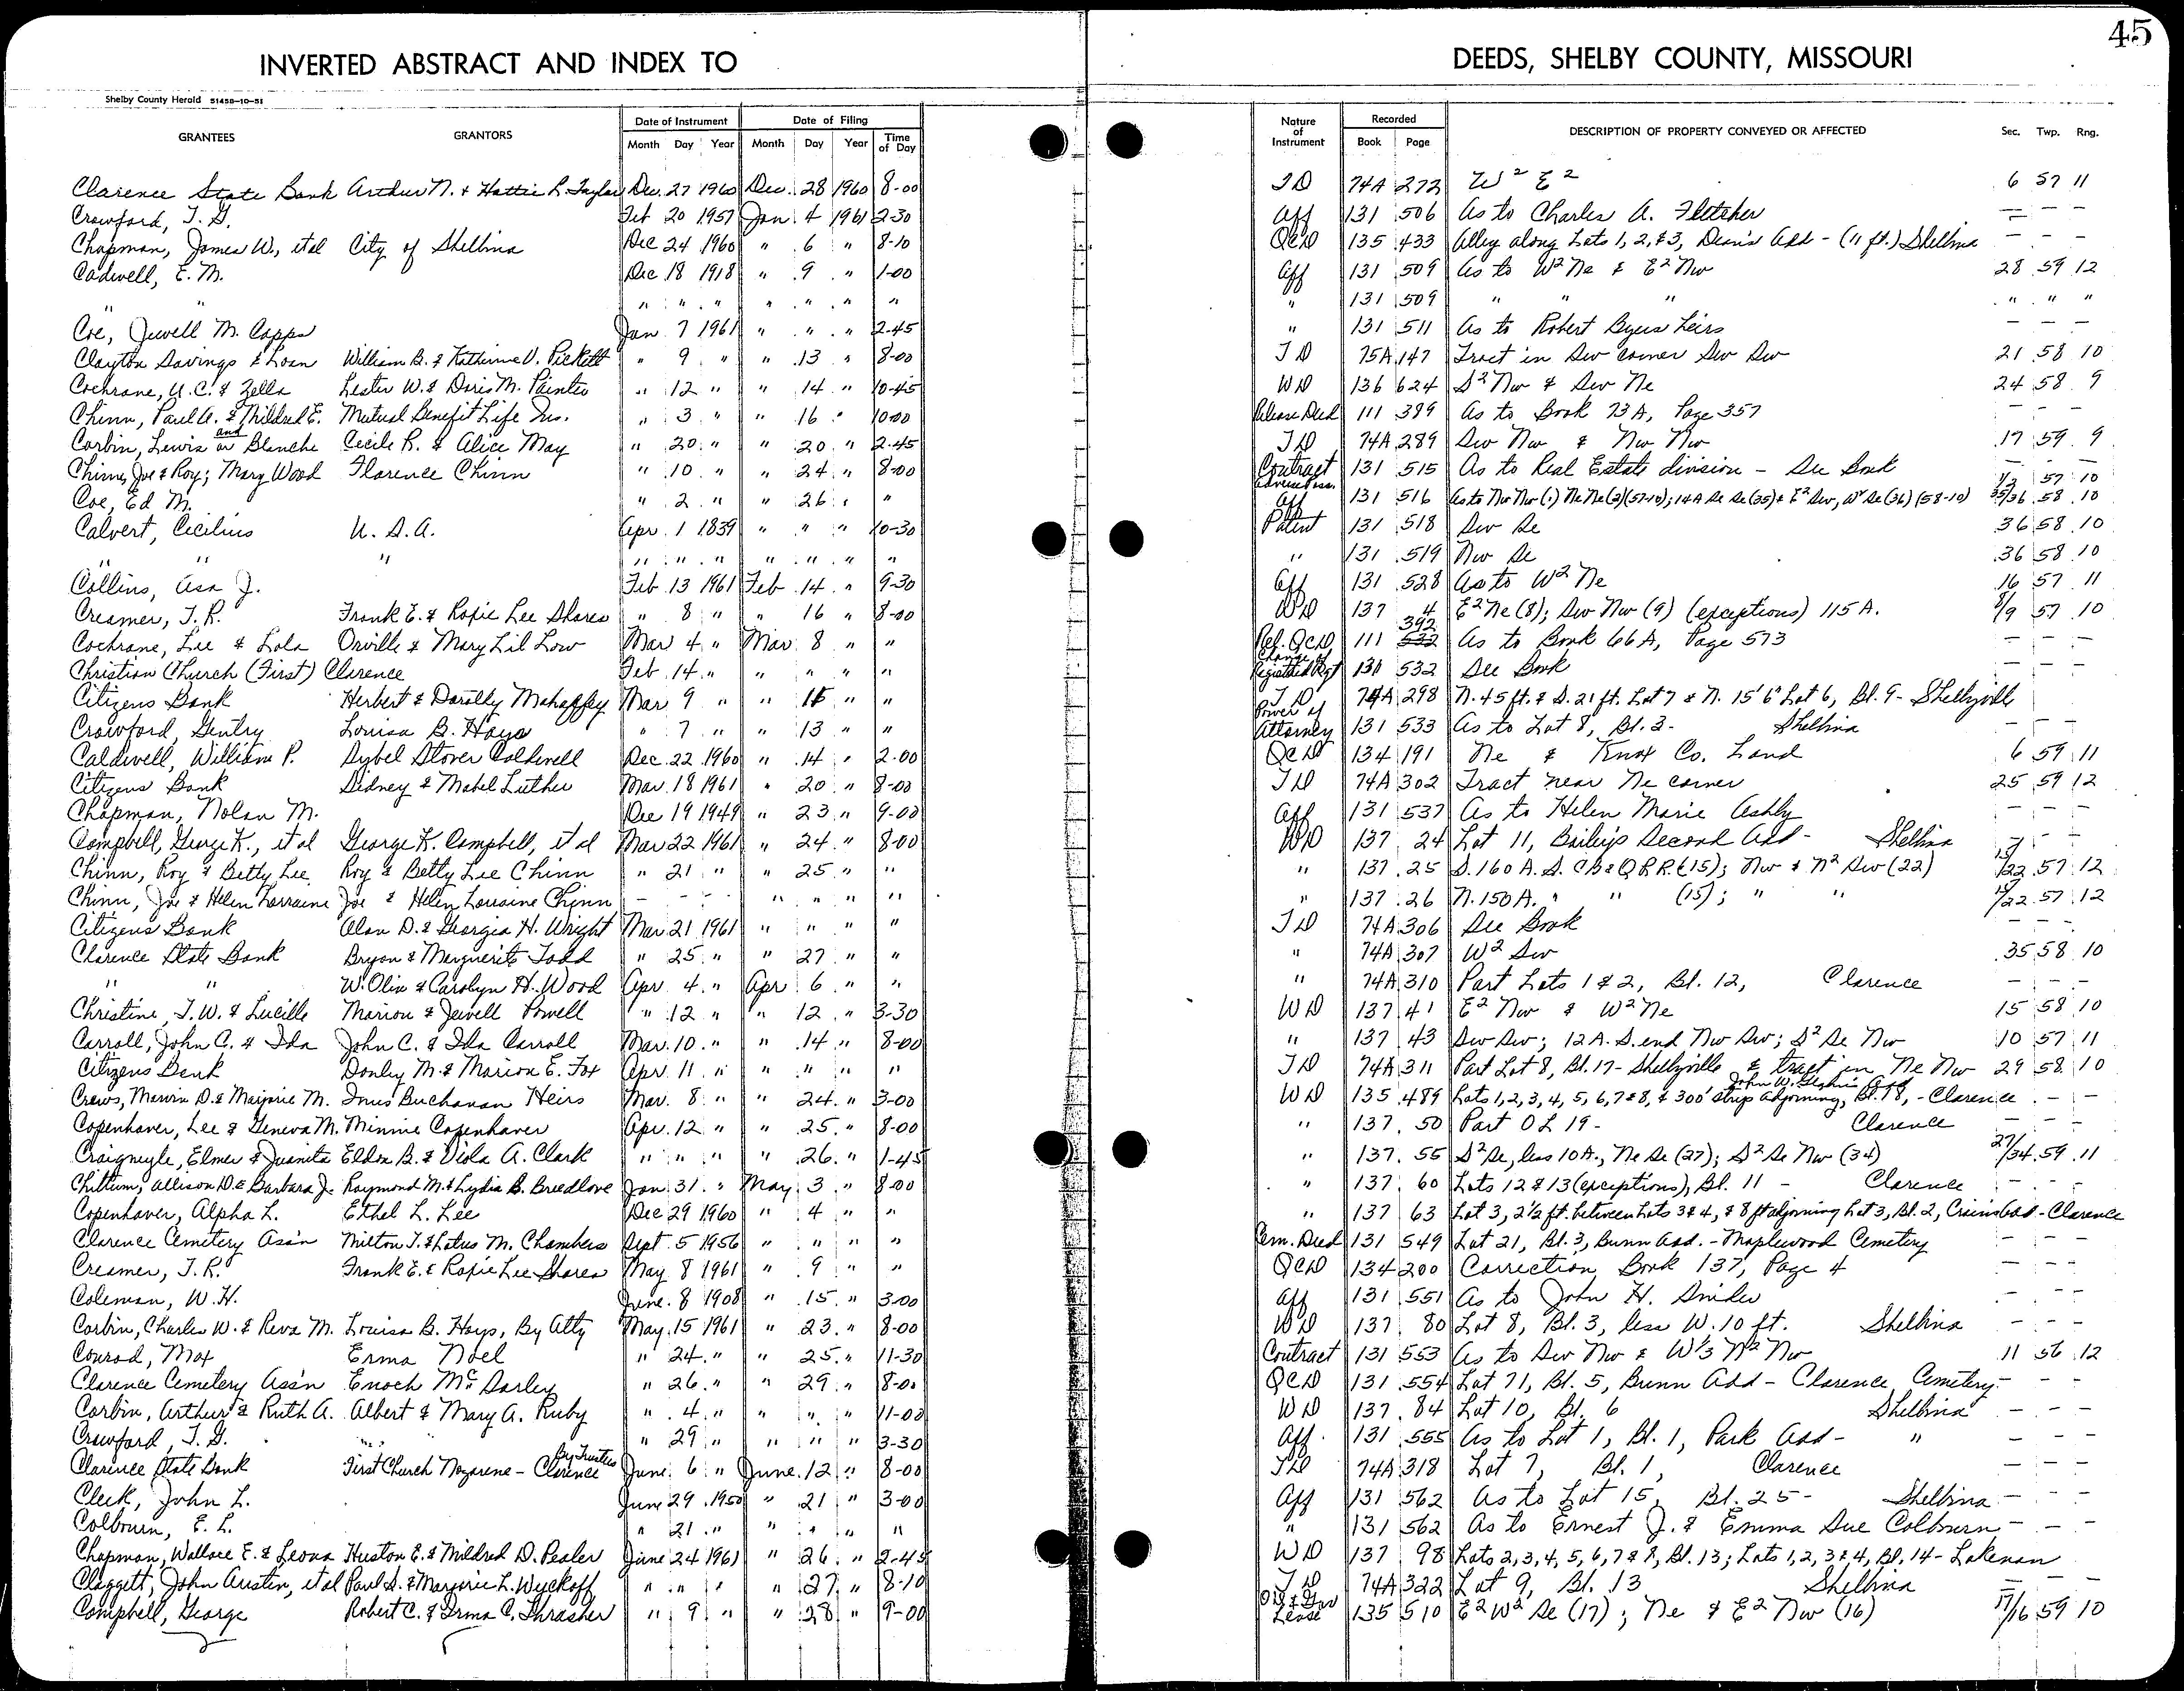 45
INVERTED ABSTRACT AND INDEX TO DEEDS, SHELBY COUNTY, MISSOURI
Shelby County Herald 51458-10-51
GRANTEES GRANTORS Date of Instrument Month Day Year Date of Filing Month Day Year Time of Day Nature of Instrument Recorded Book Page DESCRIPTION OF PROPERTY CONVEYED OR AFFECTED Sec. Twp. Rng.
Clarence State Bank Arthur N. & Hattie L. Taylor Dec. 27 1960 Dec. 28 1960 8-00 TD 74A 272 W² E² 6 57 11
Crawford, T. G. Feb 20 1957 Jan. 4 1961 2-30 Aff 131 506 As to Charles A. Fletcher — — —
Chapman, James W., et al City of Shelbina Dec 24 1960 " 6 " 8-10 QCD 135 433 Alley along Lots 1, 2, & 3, Dean's Add - (11 ft.) Shelbina — — —
Cadwell, E. M. Dec 18 1918 " 9 " 1-00 Aff 131 509 As to W² Ne & E² Nw 28 59 12
" " " " " " " " " " 131 509 " " " " " "
Coe, Jewell M. Capps Jan 7 1961 " " " 2-45 " 131 511 As to Robert Byers heirs — — —
Clayton Savings & Loan William B. & Katherine V. Pickett " 9 " " 13 " 8-00 TD 75A 147 Tract in Sw corner Sw Sw 21 58 10
Cochrane, U. C. & Zella Lester W. & Doris M. Painter " 12 " " 14 " 10-45 WD 136 624 S² Nw & Sw Ne 24 58 9
Chinn, Paul A. & Mildred E. Mutual Benefit Life Ins. " 3 " " 16 " 10-00 Release Deed 111 389 As to Book 73A, Page 357 — — —
Corbin, Lewis or and Blanche Cecile R. & Alice May " 20 " " 20 " 2-45 TD 74A 289 Sw Nw & Nw Nw 17 59 9
Chinn, Joe & Roy; Mary Wood Florence Chinn " 10 " " 24 " 8-00 Contract 131 515 As to Real Estate division - See Book — — —
Coe, Ed M. " 2 " " 26 " " Aff 131 516 As to Nw Nw (1) Ne Ne (2)(57-10); 14A Se Se (35) & E² Sw, W² Se (36) (58-10) 1/2 57 10 35/36 58 10
Calvert, Cecilius U. S. A. Apr. 1 1839 " " " 10-30 Patent 131 518 Sw Se 36 58 10
" " " " " " " " " " " 131 519 Nw Se 36 58 10
Collins, Asa J. Feb 13 1961 Feb 14 " 9-30 Aff 131 528 As to W² Ne 16 57 11
Creamer, T. R. Frank E. & Roxie Lee Shares " 8 " " 16 " 8-00 WD 137 4 E² Ne (8); Sw Nw (9) (exceptions) 115 A. 8/9 57 10
Cochrane, Lee & Lola Orville & Mary Lil Low Mar 4 " Mar 8 " " Rel. QCD 111 392 As to Book 66A, Page 573 — — —
Christian Church (First) Clarence Feb 14 " " " " " Change of Registered Agt 131 532 See Book — — —
Citizens Bank Herbert & Dorothy Mahaffey Mar 9 " " 11 " " TD 74A 298 N. 45 ft. & S. 21 ft. Lot 7 & N. 15' 6" Lot 6, Bl. 9 - Shelbyville
Crawford, Gentry Louisa B. Hays " 7 " " 13 " " Power of Attorney 131 533 As to Lot 8, Bl. 3 - Shelbina — — —
Caldwell, William P. Sybel Stover Caldwell Dec. 22 1960 " 14 " 2-00 QCD 134 191 Ne & Knox Co. Land 6 59 11
Citizens Bank Sidney & Mabel Luther Mar. 18 1961 " 20 " 8-00 TD 74A 302 Tract near Ne corner 25 59 12
Chapman, Nolan M. Dec 19 1949 " 23 " 9-00 Aff 131 537 As to Helen Marie Ashby — — —
Campbell, George K., et al George K. Campbell, et al Mar 22 1961 " 24 " 8-00 WD 137 24 Lot 11, Bailey's Second Add - Shelbina — — —
Chinn, Roy & Betty Lee Roy & Betty Lee Chinn " 21 " " 25 " " " 137 25 S. 160 A. S. CB & Q R.R. (15); Nw & N² Sw (22) 15/22 57 12
Chinn, Joe & Helen Lorraine Joe & Helen Lorraine Chinn — — — " " " " " 137 26 N. 150 A. " " (15); " " 15/22 57 12
Citizens Bank Alan D. & Georgia H. Wright Mar 21 1961 " " " " TD 74A 306 See Book — — —
Clarence State Bank Bryan & Marguerite Todd " 25 " " 27 " " " 74A 307 W² Sw 35 58 10
" " W. Olin & Carolyn H. Wood Apr 4 " Apr 6 " " " 74A 310 Part Lots 1 & 2, Bl. 12, Clarence — — —
Christine, T. W. & Lucille Marion & Jewell Powell " 12 " " 12 " 3-30 WD 137 41 E² Nw & W² Ne 15 58 10
Carroll, John C. & Ida John C. & Ida Carroll Mar. 10 " " 14 " 8-00 " 137 43 Sw Sw; 12 A. S. end Nw Sw; S² Se Nw 10 57 11
Citizens Bank Donley M. & Marion E. Fox Apr. 11 " " " " " TD 74A 311 Part Lot 8, Bl. 17 - Shelbyville & tract in Ne Nw 29 58 10
Crews, Marvin D. & Marjorie M. Innis Buchanan Heirs Mar. 8 " " 24 " 3-00 WD 135 489 Lots 1, 2, 3, 4, 5, 6, 7 & 8, & 300' strip adjoining, Bl. 18, - Clarence — — —
Copenhaver, Lee & Geneva M. Minnie Copenhaver Apr. 12 " " 25 " 8-00 " 137 50 Part O L 19 - Clarence — — —
Craigmyle, Elmer & Juanita Eldon B. & Viola A. Clark " " " " 26 " 1-45 " 137 55 S² Se, less 10 A., Ne Se (27); S² Se Nw (34) 27/34 59 11
Chittum, Allison D. & Barbara J. Raymond M. & Lydia B. Breedlove Jan 31 " May 3 " 8-00 " 137 60 Lots 12 & 13 (exceptions), Bl. 11 - Clarence — — —
Copenhaver, Alpha L. Ethel L. Lee Dec 29 1960 " 4 " " " 137 63 Lot 3, 2½ ft. between Lots 3 & 4, & 8 ft adjoining Lot 3, Bl. 2, - Clarence
Clarence Cemetery Ass'n Milton T. & Lotus M. Chambers Sept. 5 1956 " " " " Cem. Deed 131 549 Lot 21, Bl. 3, Bunn Add. - Maplewood Cemetery — — —
Creamer, T. R. Frank E. & Roxie Lee Shares May 8 1961 " 9 " " QCD 134 200 Correction Book 137, Page 4 — — —
Coleman, W. H. June 8 1908 " 15 " 3-00 Aff 131 551 As to John H. Snider — — —
Corbin, Charles W. & Reva M. Louisa B. Hays, By Atty May 15 1961 " 23 " 8-00 WD 137 80 Lot 8, Bl. 3, less W. 10 ft. Shelbina — — —
Conrad, Max Erma Noel " 24 " " 25 " 11-30 Contract 131 553 As to Sw Nw & W⅓ N² Nw 11 56 12
Clarence Cemetery Ass'n Enoch McDarley " 26 " " 29 " 8-00 QCD 131 554 Lot 71, Bl. 5, Bunn Add - Clarence Cemetery — — —
Corbin, Arthur & Ruth A. Albert & Mary A. Ruby " 4 " " " " 11-00 WD 137 84 Lot 10, Bl. 6 Shelbina — — —
Crawford, T. G. " 29 " " " " 3-30 Aff. 131 555 As to Lot 1, Bl. 1, Park Add - " — — —
Clarence State Bank First Church Nazarene - Clarence By Trustees June 6 " June 12 " 8-00 TD 74A 318 Lot 7, Bl. 1, Clarence — — —
Cleek, John L. June 29 1950 " 21 " 3-00 Aff 131 562 As to Lot 15, Bl. 25 - Shelbina — — —
Colbourn, E. L. " 21 " " " " " " 131 562 As to Ernest J. & Emma Sue Colbourn — — —
Chapman, Wallace E. & Leona Huston E. & Mildred D. Pealer June 24 1961 " 26 " 2-45 WD 137 98 Lots 2, 3, 4, 5, 6, 7 & 8, Bl. 13; Lots 1, 2, 3 & 4, Bl. 14 - Lakenan
Claggett, John Austin, et al Paul S. & Marjorie L. Wyckoff " " " " 27 " 8-10 TD 74A 322 Lot 9, Bl. 13 Shelbina — — —
Campbell, George Robert C. & Irma C. Thrasher " 9 " " 28 " 9-00 Oil & Gas Lease 135 510 E² W² Se (17); Ne & E² Nw (16) 17/16 59 10